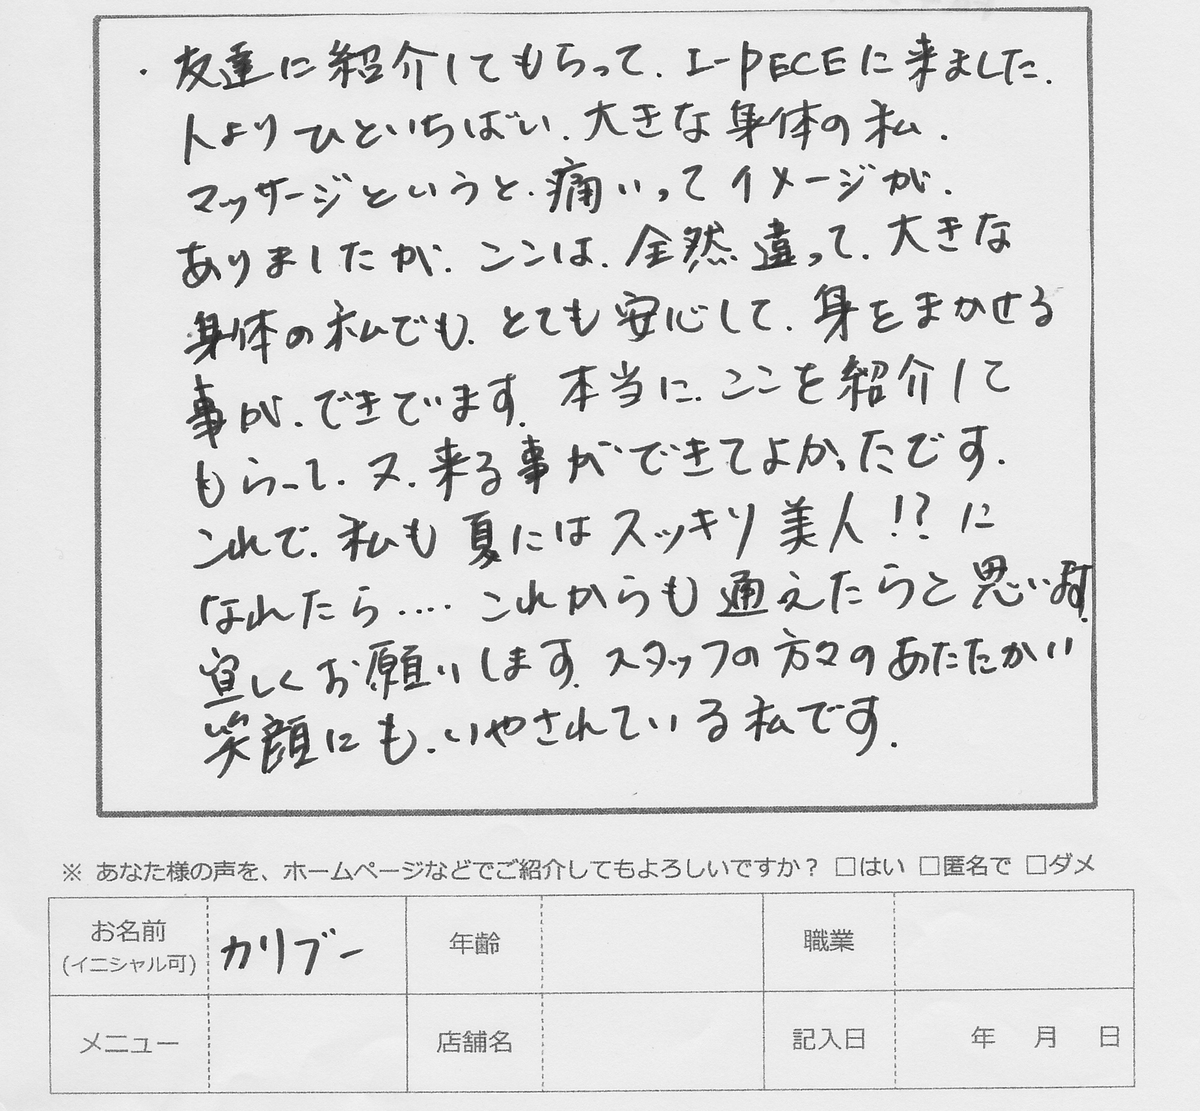 ・友達に紹介してもらって、I-PECEに来ました。
人よりひといちばい、大きな身体の私、
マッサージというと、痛いってイメージが、
ありましたが、ここは、全然違って、大きな
身体の私でも、とても安心して、身をまかせる
事が、できています。本当に、ここを紹介して
もらって、又、来る事ができてよかったです。
これで、私も夏にはスッキリ美人!?に
なれたら‥‥これからも通えたらと思います。
宜しくお願いします。スタッフの方々のあたたかい
笑顔にも、いやされている私です。
※ あなた様の声を、ホームページなどでご紹介してもよろしいですか？ □はい □匿名で □ダメ
お名前 カリブー 年齢 職業
(イニシャル可)
メニュー 店舗名 記入日 年 月 日